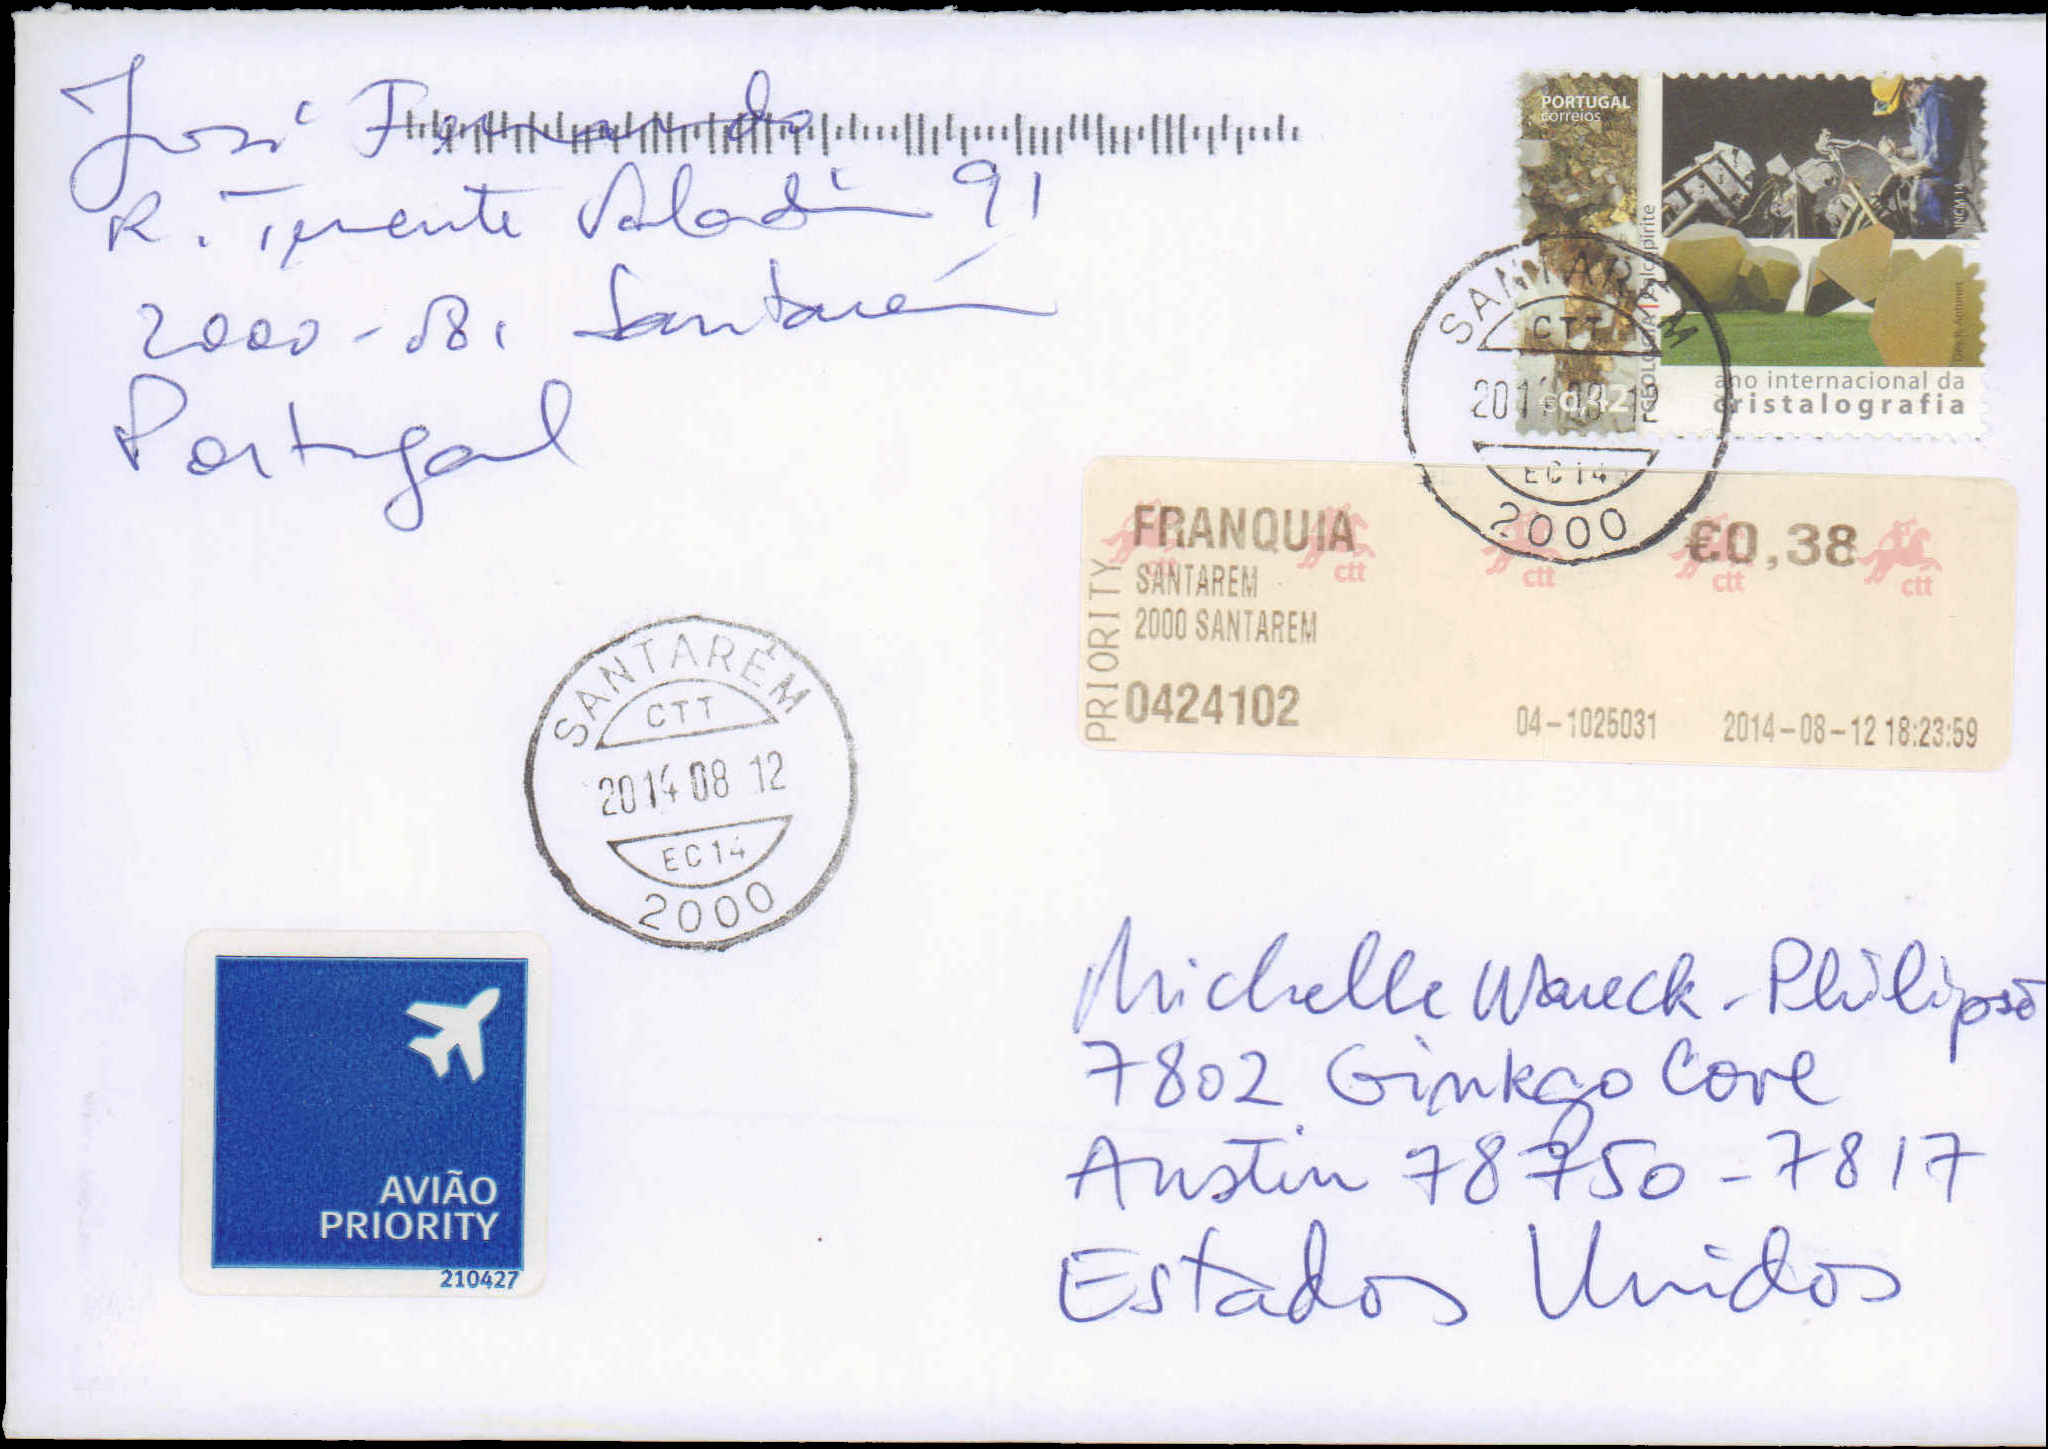 José Fernando
R. Tenente Valadim 91
2000-58. Santarém
Portugal
PORTUGAL
correios
GEOLOGIA | Calcopirite
INCM 14
€0,42
ano internacional da
cristalografia
SANTARÉM
CTT
2014 08 12
EC14
2000
PRIORITY
FRANQUIA
€0,38
ctt ctt ctt ctt ctt
SANTAREM
2000 SANTAREM
0424102
04-1025031
2014-08-12 18:23:59
SANTARÉM
CTT
2014 08 12
EC14
2000
AVIÃO
PRIORITY
210427
Michelle
7802 Ginkgo Cove
Austin 78750-7817
Estados Unidos